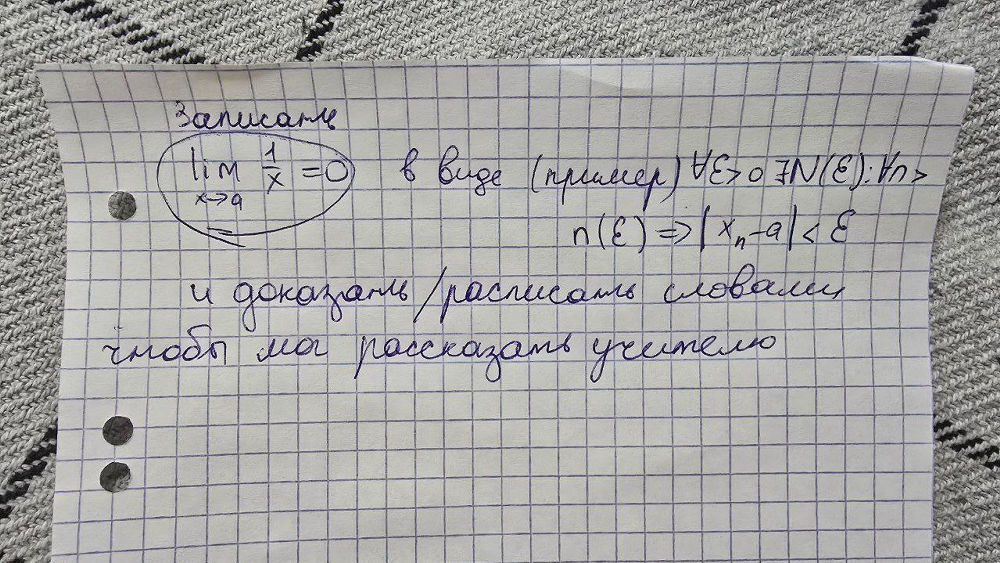 Записать
lim x→a 1/x = 0 в виде (пример) ∀ε>0 ∃N(ε):∀n>
n(ε) => |xₙ-a| < ε
и доказать/расписать словами
чтобы мог рассказать учителю